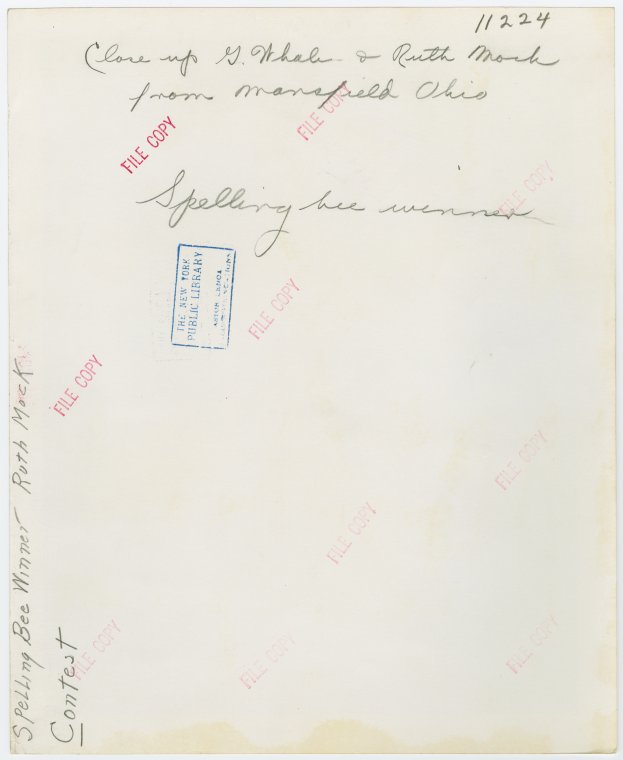 11224
Close up G. Whalen & Ruth Mock
from Mansfield Ohio
FILE COPY
FILE COPY
Spelling bee winner
FILE COPY
THE NEW YORK
PUBLIC LIBRARY
ASTOR LENOX
FILE COPY
FILE COPY
FILE COPY
FILE COPY
FILE COPY
FILE COPY
FILE COPY
Spelling Bee Winner Ruth Mock
Contest